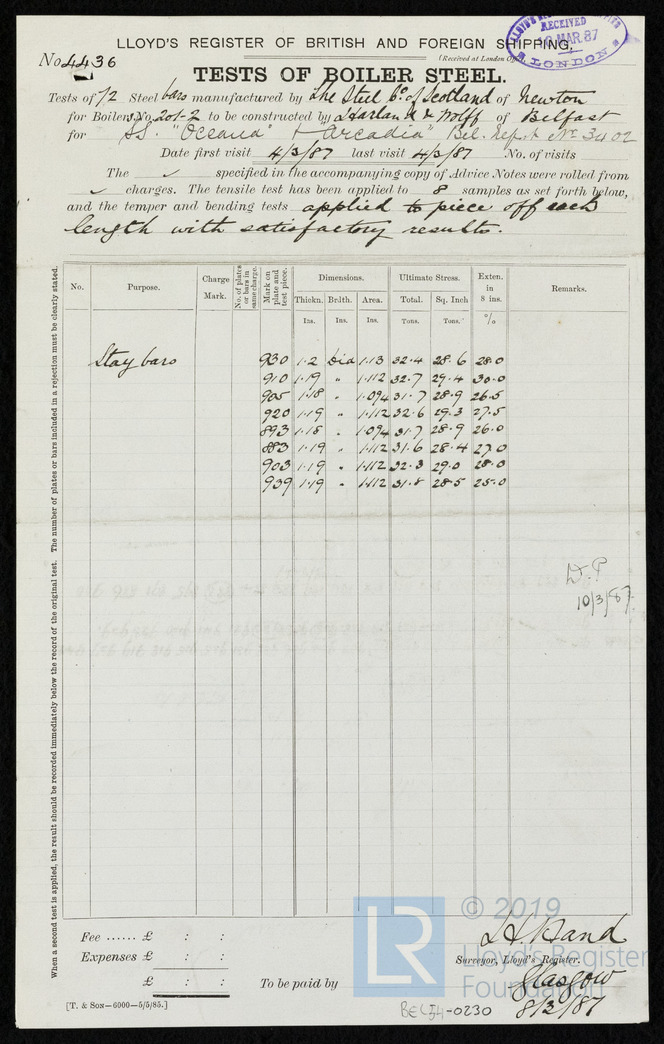 LLOYD'S REGISTER OF BRITISH AND FOREIGN SHIPPING.
RECEIVED
MAR. 87
LONDON
No. 4436
(Received at London Office
TESTS OF BOILER STEEL.
Tests of 72 Steel bars manufactured by The Steel Co. of Scotland of Newton
for Boilers No. 201-2 to be constructed by Harland & Wolff of Belfast
for S.S. "Oceana" + "Arcadia" Bel. Rept No 3402
Date first visit 4/3/87 last visit 4/3/87 No. of visits
The ✓ specified in the accompanying copy of Advice Notes were rolled from
✓ charges. The tensile test has been applied to 8 samples as set forth below,
and the temper and bending tests applied to piece off each
length with satisfactory results.
When a second test is applied, the result should be recorded immediately below the record of the original test. The number of plates or bars included in a rejection must be clearly stated.
No. Purpose. Charge Mark. No. of plates or bars in same charge. Mark on plate and test piece. Dimensions. Ultimate Stress. Exten. in 8 ins. Remarks.
Thickn. Brdth. Area. Total. Sq. Inch
Ins. Ins. Ins. Tons. Tons. %
Stay bars 930 1.2 Dia 1.13 32.4 28.6 28.0
910 1.19 " 1.112 32.7 29.4 30.0
905 1.18 " 1.094 31.7 28.9 26.5
920 1.19 " 1.112 32.6 29.3 27.5
893 1.18 " 1.094 31.7 28.9 26.0
883 1.19 " 1.112 31.6 28.4 27.0
903 1.19 " 1.112 32.3 29.0 28.0
939 1.19 " 1.112 31.8 28.5 25.0
10/3/87.
Fee ...... £ : :
Expenses £ : :
£ : :
To be paid by
Surveyor, Lloyd's Register.
Glasgow
8/3/87
[T. & SON—6000—5/5/85.]
BEL54-0230
LR
© 2019
Lloyd's Register
Foundation